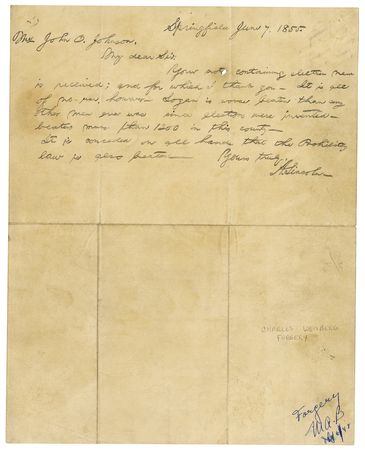 Springfield June 7, 1855.
Mr. John O. Johnson.
My dear Sir:
Your note containing election news
is received; and for which I thank you - It is all
of no use, however. Logan is worse beaten than any
other man ever was since elections were invented -
beaten more than 1200 in this county -
It is conceded on all hands that the Prohibitory
law is also beaten - Yours truly
A. Lincoln
CHARLES WEISBERG
FORGERY
Forgery
M.A.B